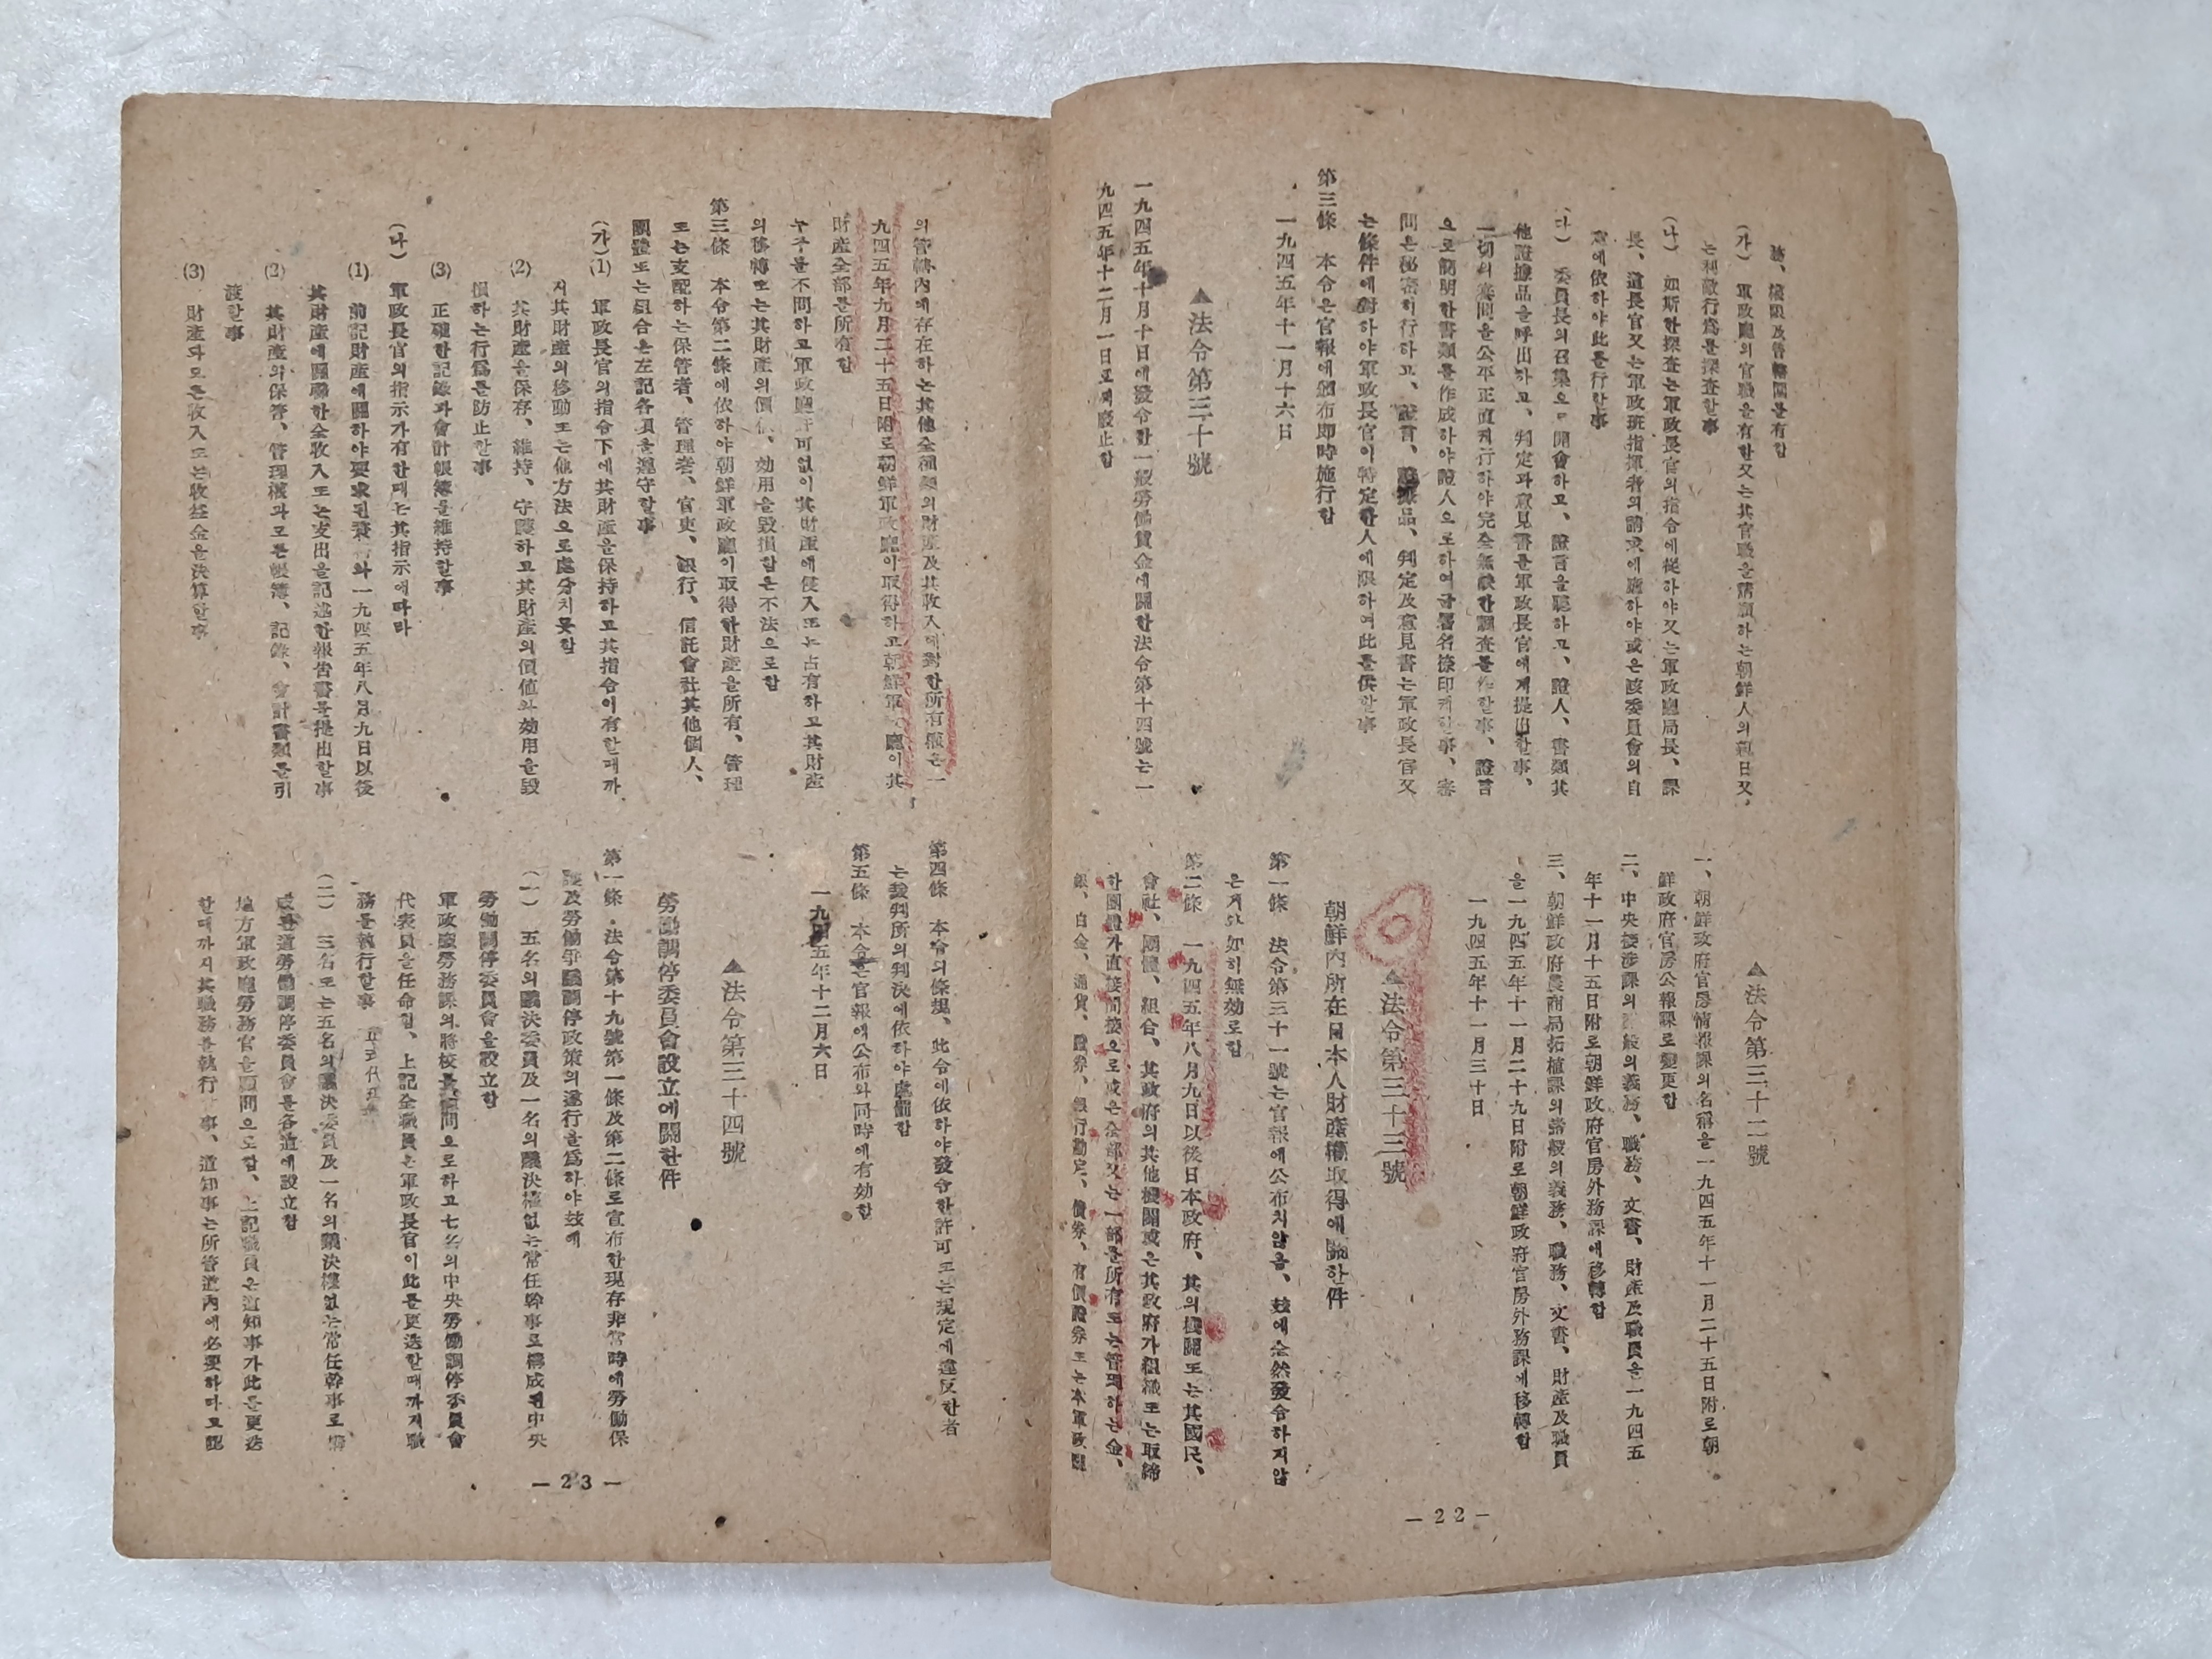 務、權限及管轄圈를有함
(가) 軍政廳의官職을有한又는其官職을請願하는朝鮮人의親日又、
는利敵行爲를探査할事
(나) 如斯한探査는軍政長官의指令에從하야又는軍政廳局長、課
長、道長官又는軍政班指揮者의請求에應하야或은該委員會의自
意에依하야此를行할事
(다) 委員長의召集으로開會하고、證言을聽하고、證人、書類其
他證據品을呼出하고、判定과意見書를軍政長官에게提出할事、
一切의審問을公平正直케行하야完全無缺한調査를作할事、證言
으로簡明한書類를作成하야證人으로하여금署名捺印케할事、審
問은秘密히行하고、證言、證據品、判定及意見書는軍政長官又
는條件에對하야軍政長官이特定한人에限하여此를供할事
第三條 本令은官報에頒布卽時施行함
一九四五年十一月十六日
▲法令第三十號
一九四五年十月十日에發令한一般勞働賃金에關한法令第十四號는一
九四五年十二月一日로써廢止함
▲法令第三十二號
一、朝鮮政府官房情報課의名稱을一九四五年十一月二十五日附로朝
鮮政府官房公報課로變更함
二、中央接涉課의諸般의義務、職務、文書、財產及職員을一九四五
年十一月十五日附로朝鮮政府官房外務課에移轉함
三、朝鮮政府農商局拓植課의諸般의義務、職務、文書、財產及職員
을一九四五年十一月二十九日附로朝鮮政府官房外務課에移轉함
一九四五年十一月三十日
▲法令第三十三號
朝鮮內所在日本人財產權取得에關한件
第一條 法令第三十一號는官報에公布치않음、玆에全然發令하지않
은거와如히無効로함
第二條 一九四五年八月九日以後日本政府、其의機關또는其國民、
會社、團體、組合、其政府의其他機關或은其政府가組織또는取締
한團體가直接間接으로或은全部又는一部를所有또는管理하는金、
銀、白金、通貨、證券、銀行勘定、債券、有價證券또는本軍政廳
— 22 —
의管轄內에存在하는其他全種類의財產及其收入에對한所有權은一
九四五年九月二十五日附로朝鮮軍政廳이取得하고朝鮮軍政廳이其
財產全部를所有함
누구를不問하고軍政廳許可없이其財產에侵入또는占有하고其財產
의移轉또는其財產의價値、効用을毀損함은不法으로함
第三條 本令第二條에依하야朝鮮軍政廳이取得한財產을所有、管理
또는支配하는保管者、管理者、官吏、銀行、信託會社其他個人、
團體또는組合은左記各項을遵守할事
(가)(1) 軍政長官의指令下에其財產을保持하고其指令이有할때까
지其財產의移動또는他方法으로處分치못함
(2) 其財產을保存、維持、守護하고其財產의價値와効用을毀
損하는行爲를防止할事
(3) 正確한記錄과會計帳簿을維持할事
(나) 軍政長官의指示가有한때는其指示에따라
(1) 前記財產에關하야要求된 一九四五年八月九日以後
其財產에關聯한全收入또는支出을記述한報告書를提出할事
(2) 其財產의保管、管理權과모든帳簿、記錄、會計書類를引
渡할事
(3) 財產과모든收入또는收益金을決算할事
第四條 本令의條規、此令에依하야發令한許可또는規定에違反한者
는裁判所의判決에依하야處罰함
第五條 本令은官報에公布와同時에有効함
一九四五年十二月六日
▲法令第三十四號
勞働調停委員會設立에關한件
第一條、法令第十九號第一條及第二條로宣布한現存非常時에勞働保
護及勞働爭議調停政策의遂行을爲하야玆에
(一) 五名의議決委員及一名의議決權없는常任幹事로構成된中央
勞働調停委員會을設立함
軍政廳勞務課의將校를顧問으로하고七名의中央勞働調停委員會
代表員을任命함、上記全職員은軍政長官이此를更迭한때까지職
務를執行할事
(二) 三名또는五名의議決委員及一名의議決權없는常任幹事로構
成한道勞働調停委員會를各道에設立함
地方軍政廳勞務官을顧問으로함、上記職員은道知事가此를更迭
한때까지其職務를執行 事、道知事는所管道內에必要하다고認
— 23 —